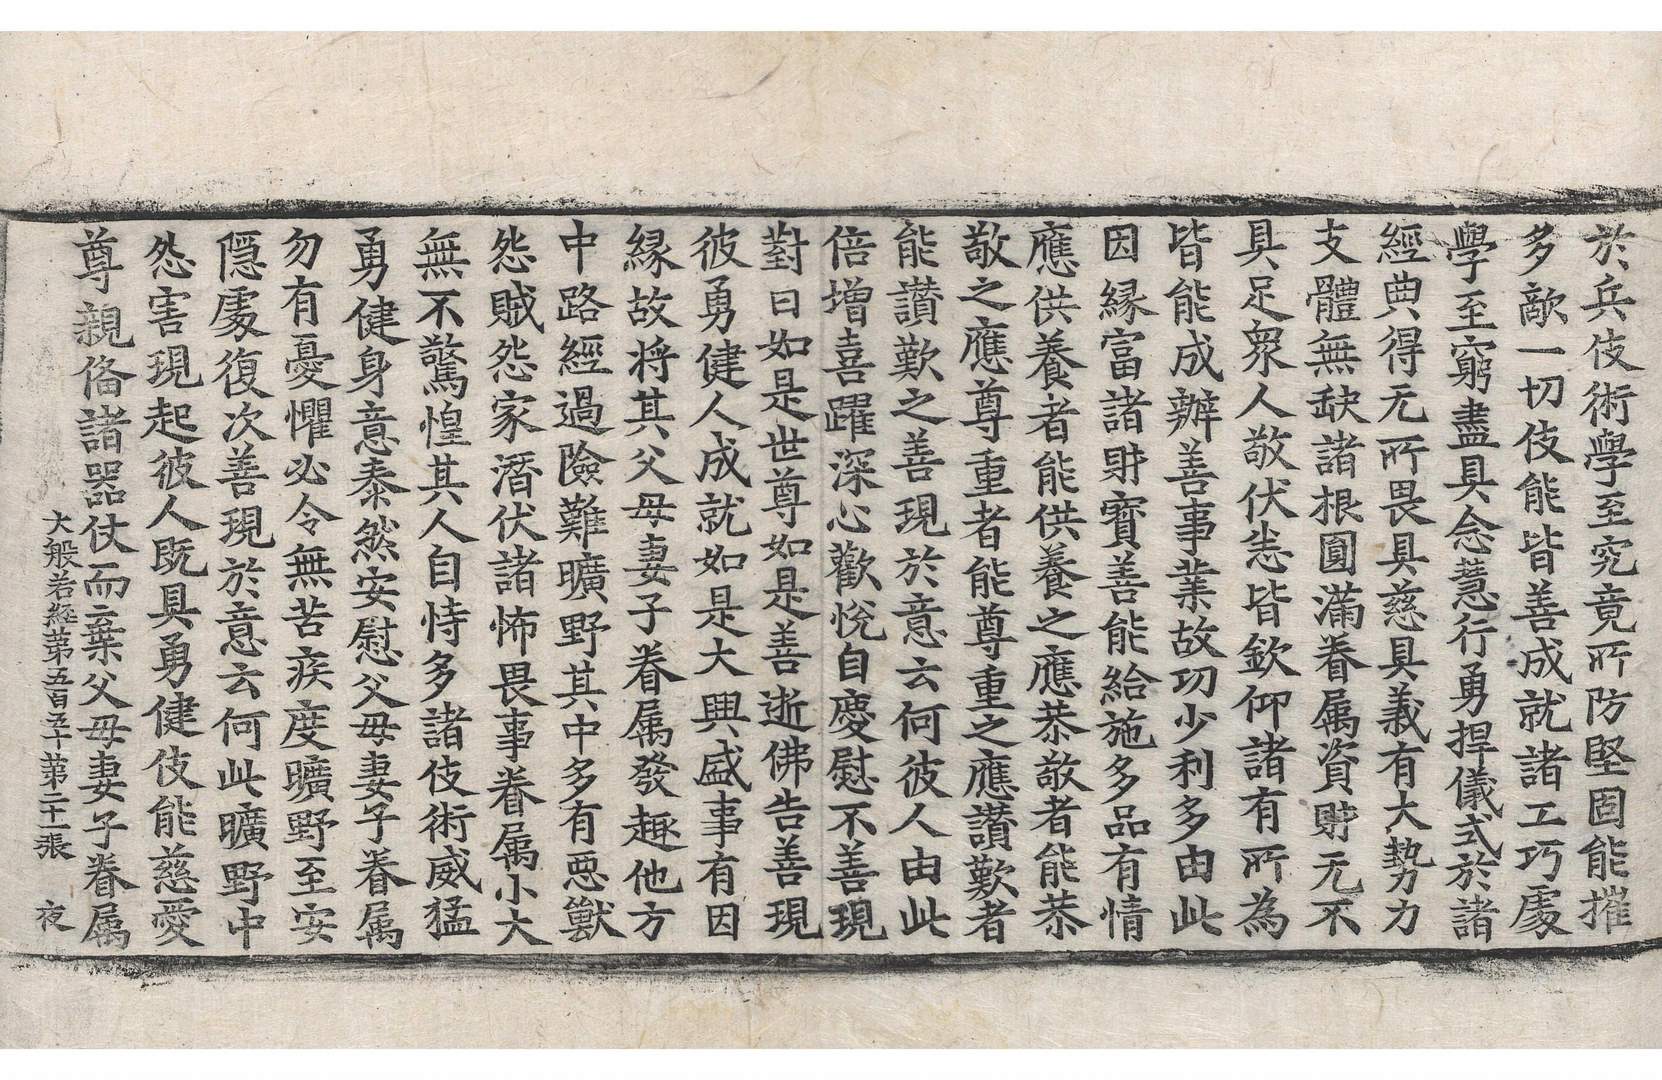 於兵伎術學至究竟所防堅固能摧
多敵一切伎能皆善成就諸工巧處
學至窮盡具念慧行勇捍儀式於諸
經典得无所畏具慈具義有大勢力
支體無缺諸根圓滿眷属資財无不
具足衆人敬伏悉皆欽仰諸有所為
皆能成辦善事業故功少利多由此
因縁富諸財寳善能給施多品有情
應供養者能供養之應恭敬者能恭
敬之應尊重者能尊重之應讃歎者
能讃歎之善現於意云何彼人由此
倍增喜躍深心歡悅自慶慰不善現
對曰如是世尊如是善逝佛告善現
彼勇健人成就如是大興盛事有因
縁故将其父母妻子眷属發趣他方
中路經過險難曠野其中多有惡獸
怨賊怨家潛伏諸怖畏事眷属小大
無不驚惶其人自恃多諸伎術威猛
勇健身意泰然安慰父母妻子眷属
勿有憂懼必令無苦疾度曠野至安
隠處復次善現於意云何此曠野中
怨害現起彼人既具勇健伎能慈愛
尊親俻諸器仗而棄父母妻子眷属
大般若経第五百五十第二十一張 夜